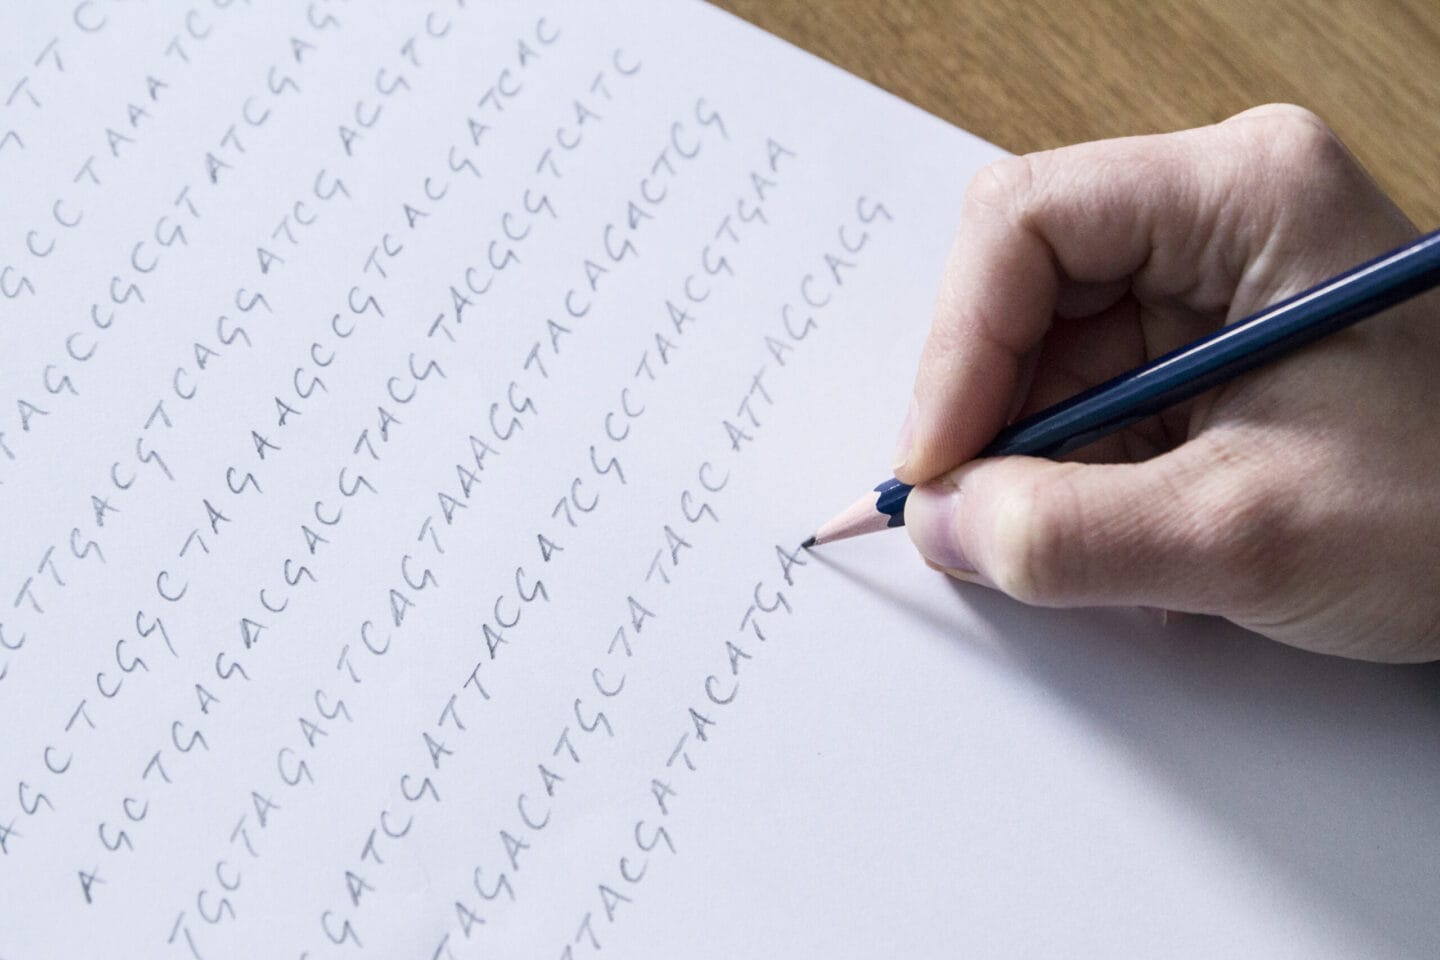 GTTC
GCCTAAATCG
TAGCCGCGTATCGAG
CCTTGACGTCAGGATCGACGTC
AGCTCGGCTAGAAGCCGTCACGATCAC
AGCTGAGACGACGTACGTACGCGTCATC
TGCTAGAGTCAGTAAAGGTACAGACTCG
GATCGATTACGATCGCCTAACGTGAA
TAGACATGCTATAGCATTAGCAGG
TTACGATACATGA